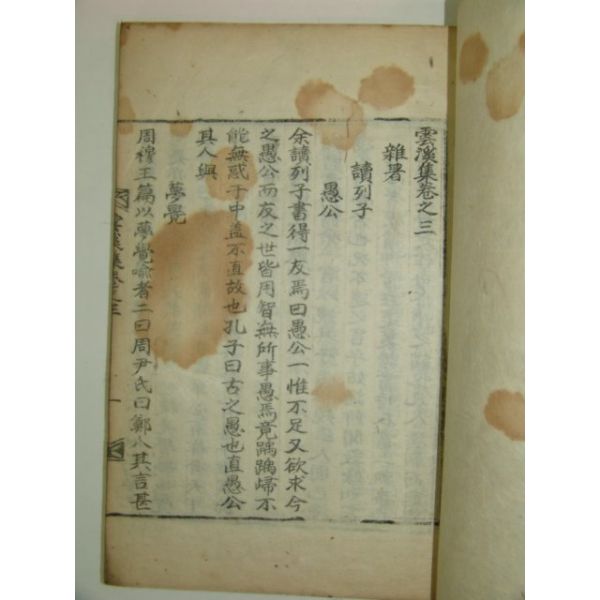 雲溪集卷之三
雜著
讀列子
愚公
余讀列子書得一友焉曰愚公一惟不足又欲求今
之愚公而友之世皆用智無所事愚焉竟踽踽歸不
能無惑于中盖不直故也孔子曰古之愚也直愚公
其人與
夢覺
周穆王篇以夢覺喻者二曰周尹氏曰鄭人其言甚